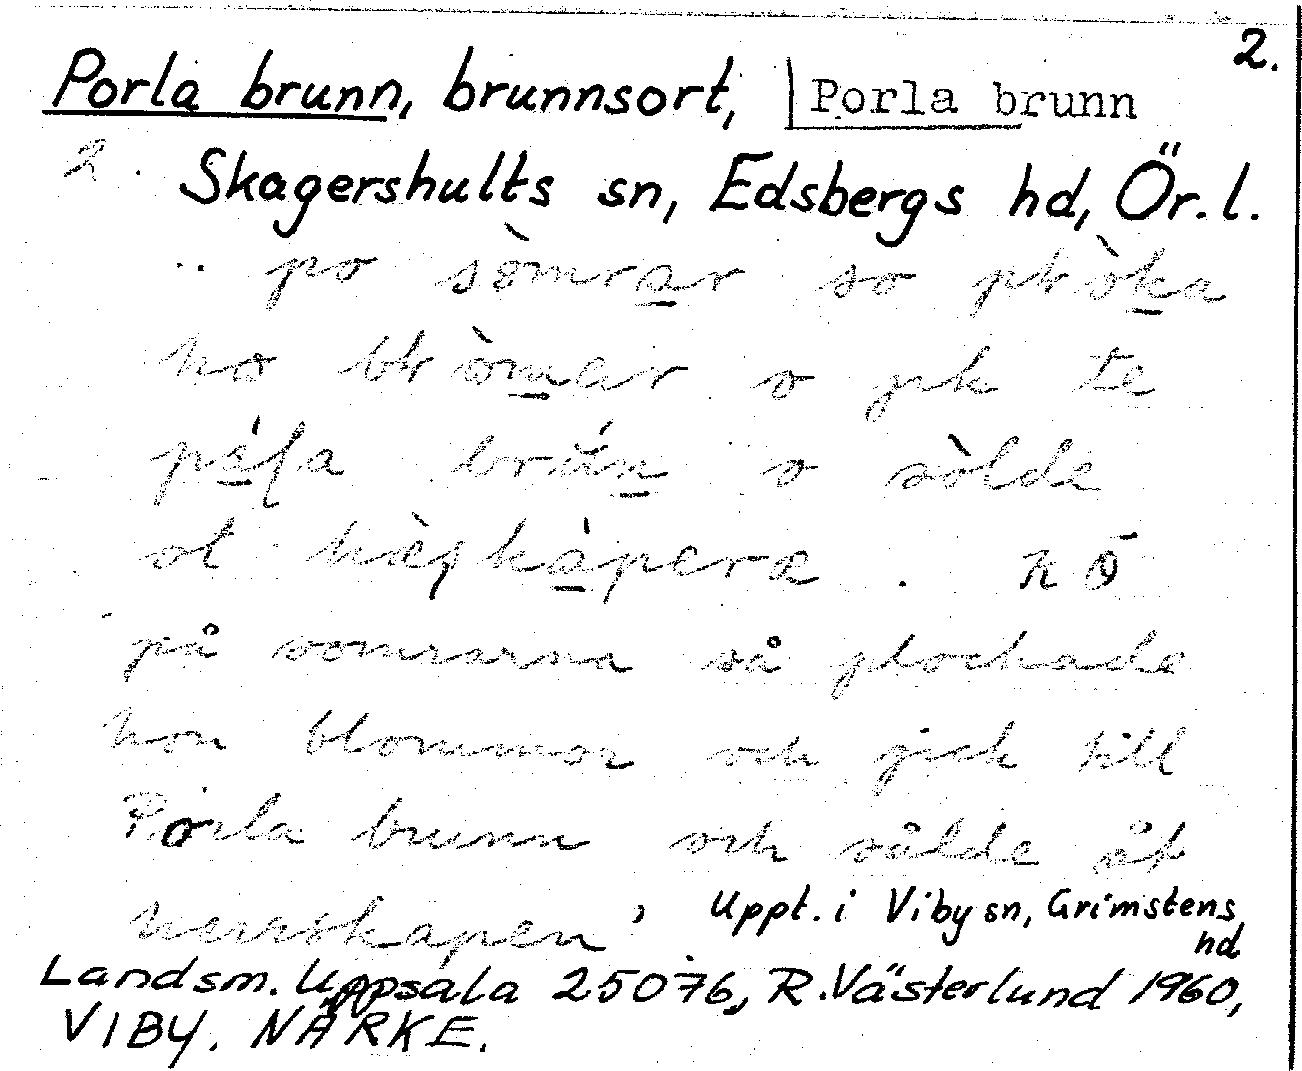 2.
Porla brunn, brunnsort, Porla brunn
2. Skagershults sn, Edsbergs hd, Ör.l.
.. po sòmrar so plòka
ho blòmer o jik te
brún o sòlde
ot
på somrarna så plockade
hon blommor och gick till
Porla brunn och sålde åt
herrskapen' Uppt. i Viby sn, Grimstens
hd
Landsm. Uppsala 25076, R. Västerlund 1960,
VIBY. NÄRKE.